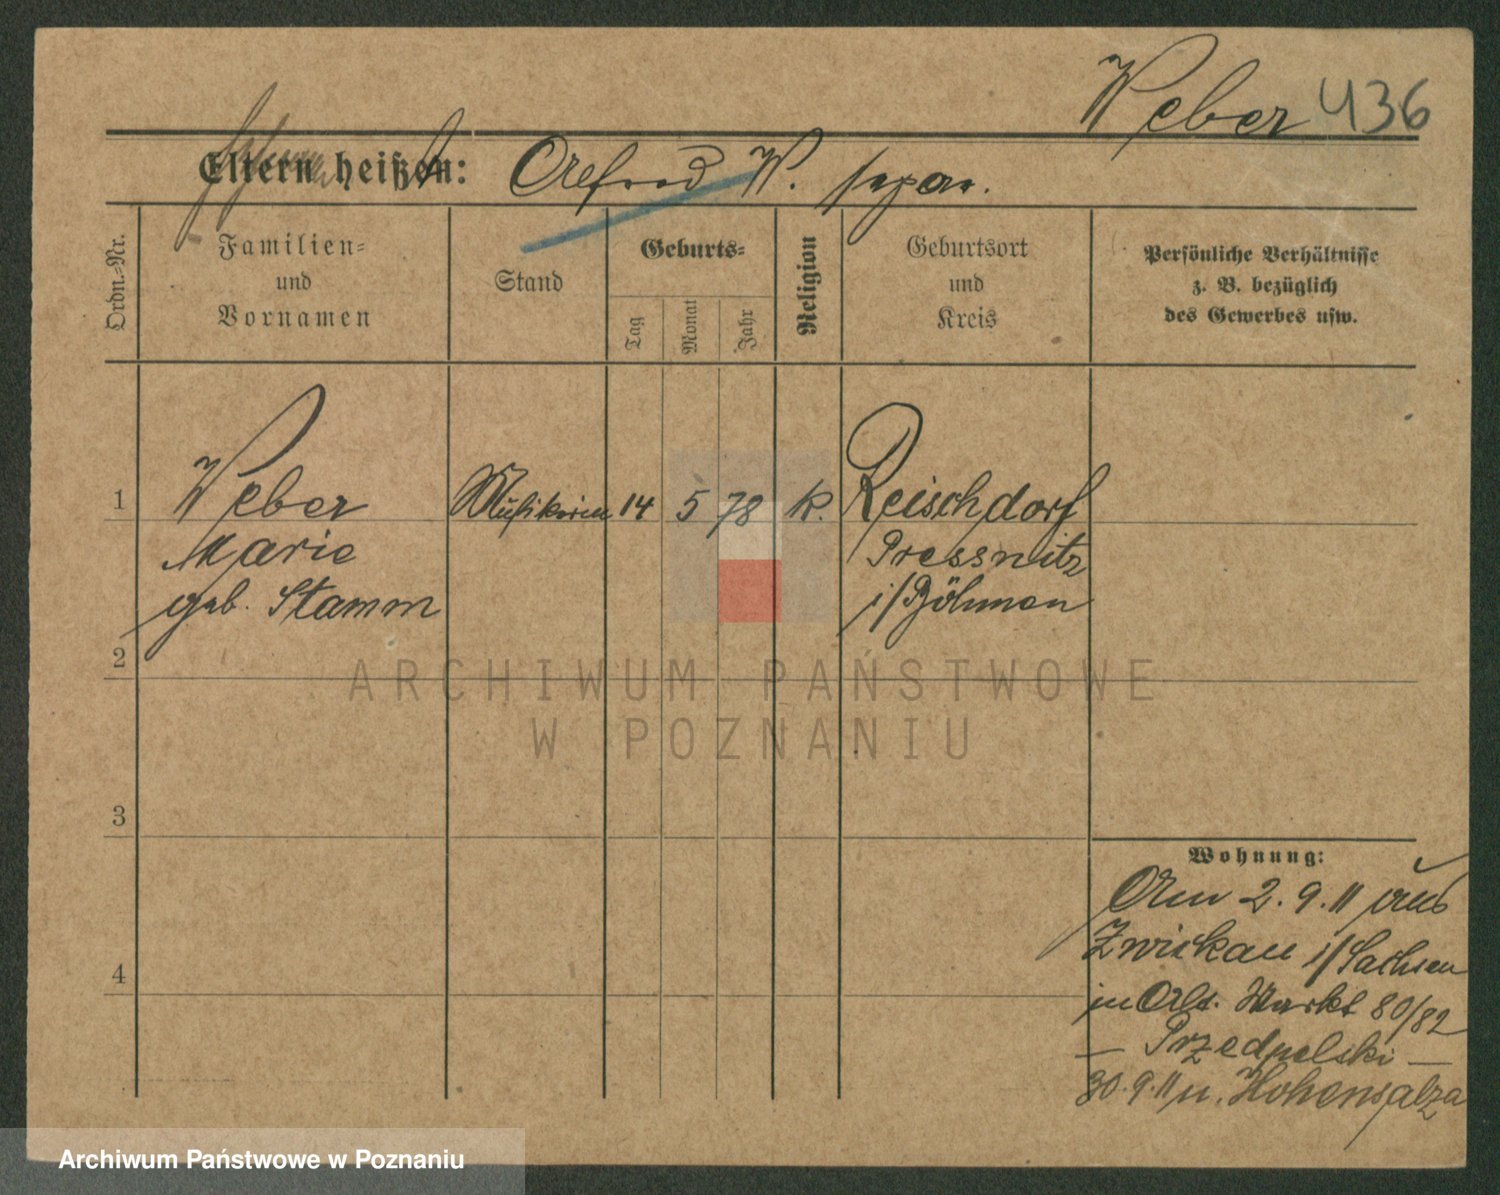 Weber 436
Eltern heißen: Alfred W. separ.
Ordn.-Nr.
Familien-
und
Vornamen
Stand
Geburts-
Tag
Monat
Jahr
Religion
Geburtsort
und
Kreis
Persönliche Verhältnisse
z. B. bezüglich
des Gewerbes usw.
1 Weber Musikerin 14 5 78 k. Reischdorf
Marie Pressnitz
geb. Stamm i/Böhmen
2
3
4
Wohnung:
Am 2.9.11 aus
Zwickau i/Sachsen
in Alt. Markt 80/82
— Przedpelski —
30.9.11 n. Hohensalza
ARCHIWUM PAŃSTWOWE
W POZNANIU
Archiwum Państwowe w Poznaniu